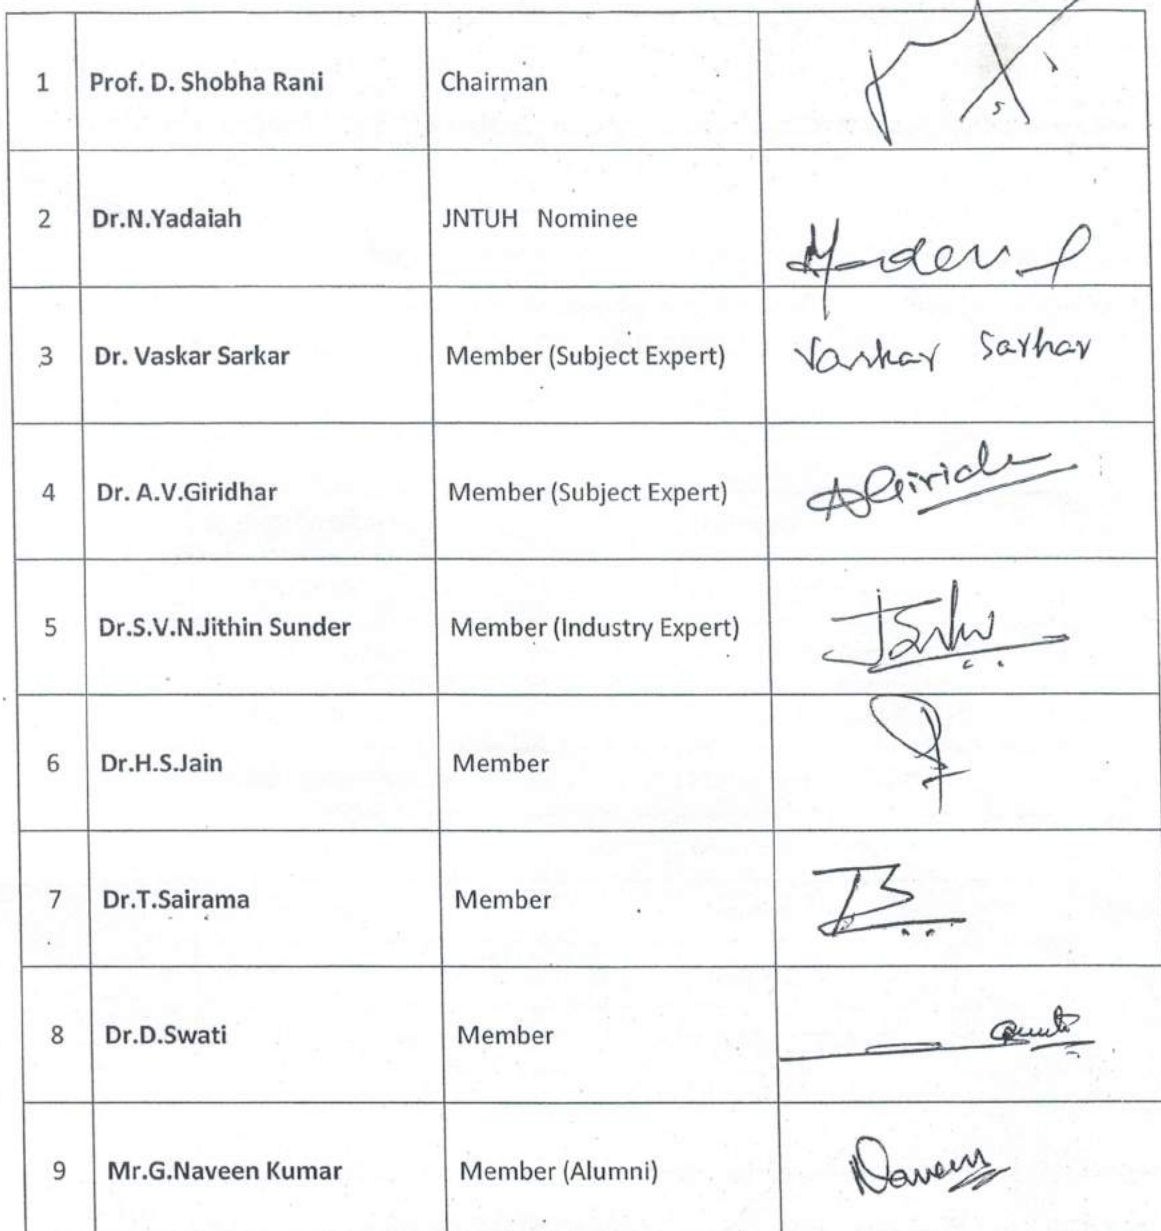 1 Prof. D. Shobha Rani Chairman
2 Dr.N.Yadaiah JNTUH Nominee
3 Dr. Vaskar Sarkar Member (Subject Expert) Vaskar Sarkar
4 Dr. A.V.Giridhar Member (Subject Expert)
5 Dr.S.V.N.Jithin Sunder Member (Industry Expert)
6 Dr.H.S.Jain Member
7 Dr.T.Sairama Member
8 Dr.D.Swati Member
9 Mr.G.Naveen Kumar Member (Alumni) Naveen